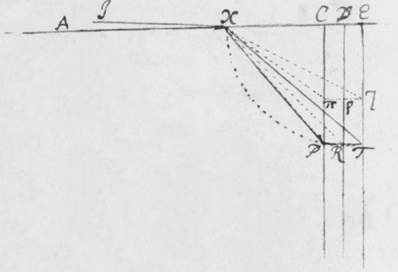 A J X C D E
π p
P R T